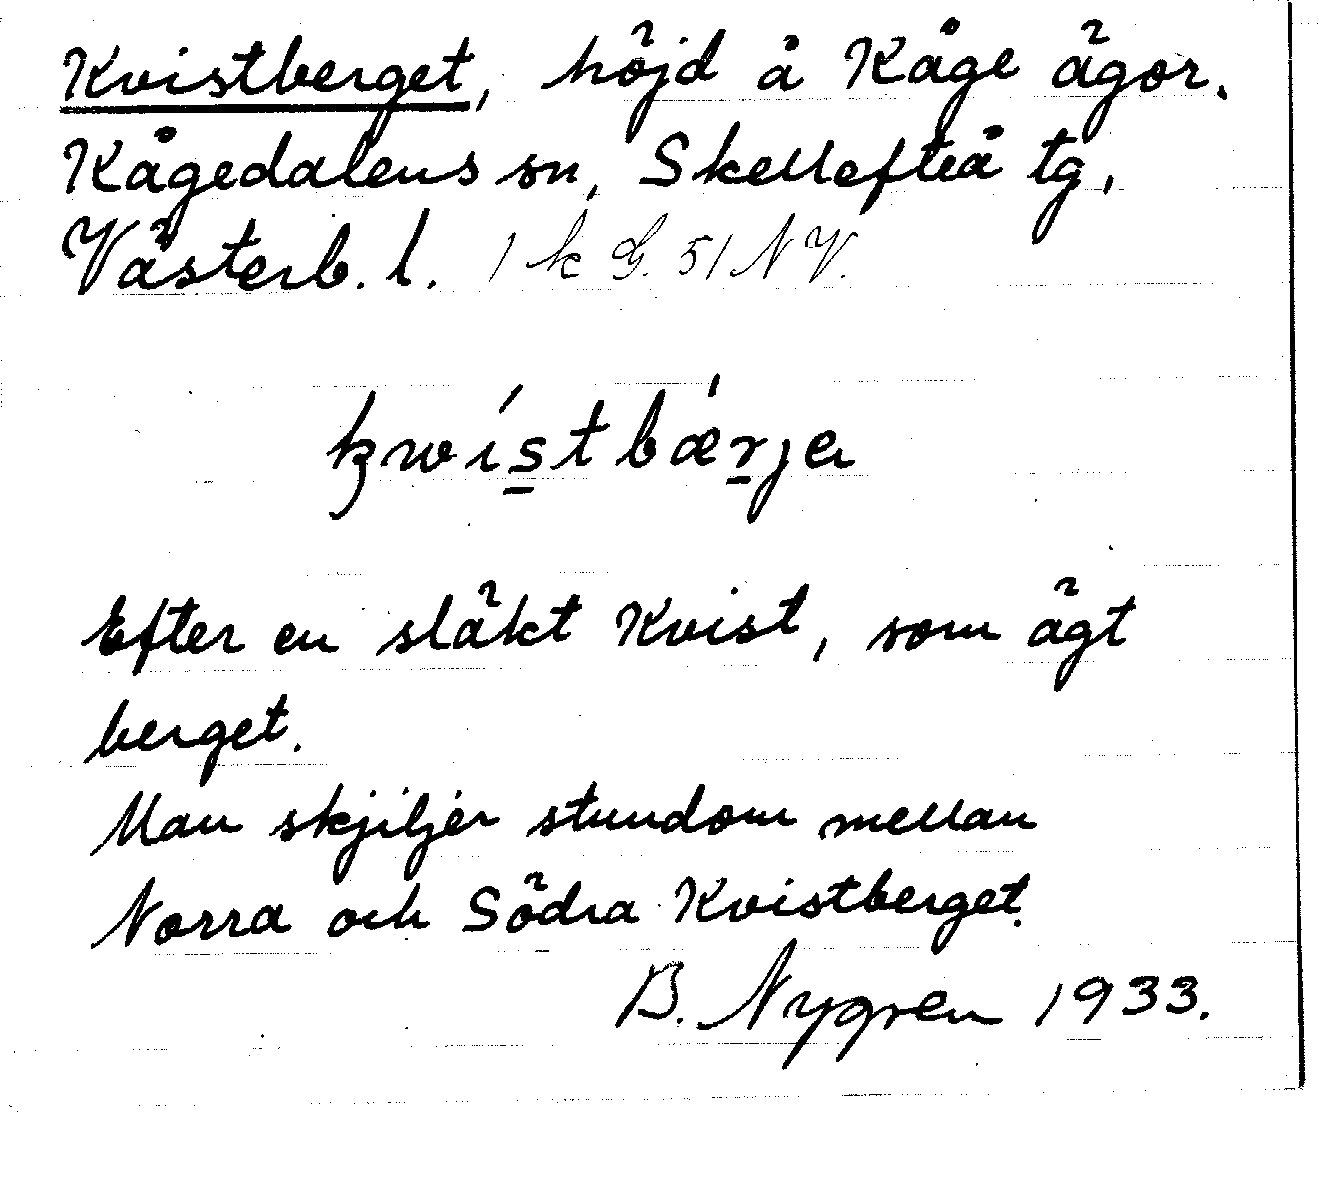 Kvistberget, höjd å Kåge ägor.
Kågedalens sn, Skellefteå tg,
Västerb. l. 1 k G. 51 N V.
kwístbǽrja
Efter en släkt Kvist, som ägt
berget.
Man skjiljer stundom mellan
Norra och Södra Kvistberget.
B. Nygren 1933.